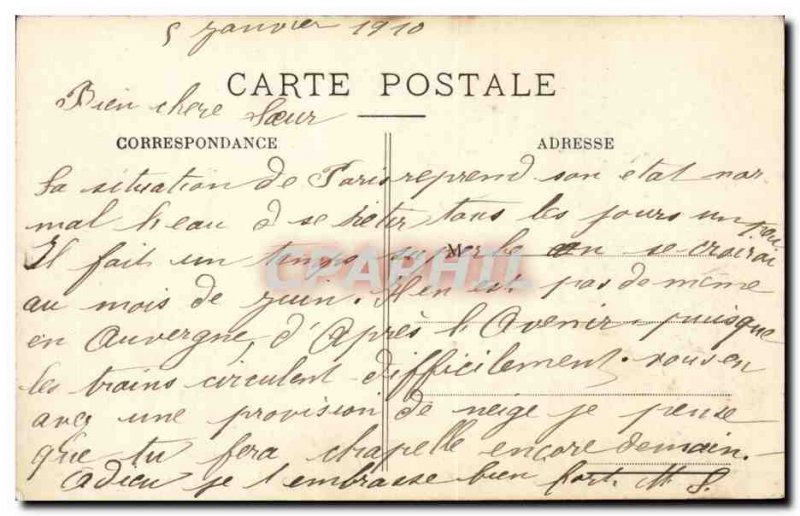 5 janvier 1910
CARTE POSTALE
Bien chere Sœur
CORRESPONDANCE
ADRESSE
La situation de Paris reprend son état nor
mal l'eau à se reter tous les jours un peu
Il fait un temps superbe on se croirai
M
CPAPHIL
au mois de juin. Il en est pas de même
en Auvergne, d'Après l'Avenir puisque
les trains circulent difficilement. vous en
avez une provision de neige je pense
que tu fera chapelle encore demain.
Adieu je t'embrasse bien fort. M S.